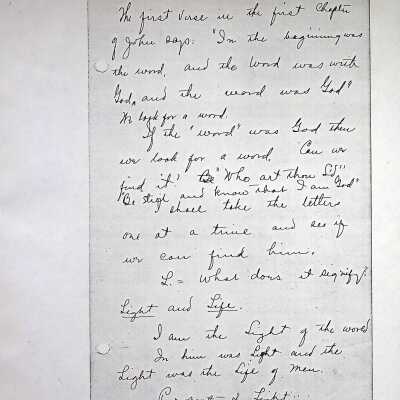 The first verse in the first Chapter
of John says: "In the beginning was
the word, and the Word was with
God, and the word was God"
We look for a word.
If the "word" was God then
we look for a word, Can we
find it? "Who art thou
"Be still and know that I am God"
I shall take the letters
one at a time and see if
we can find him.
L. = What does it signify?
Light and Life.
I am the Light of the world
In him was Light and the
Light was the Life of Men.